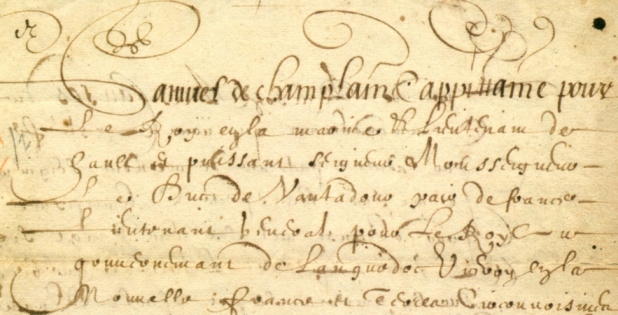 Samuel de champlain Cappittaine pour
Le Roy en la marine & Lieutenant de
hault et puissant seigneur Monsseigneur
Le Ducq de Vantadour pair de france
Lieutenant general pour Le Roy au
gouvernement de Languedoc Viceroy en la
Nouvelle france et terres circonvoisines